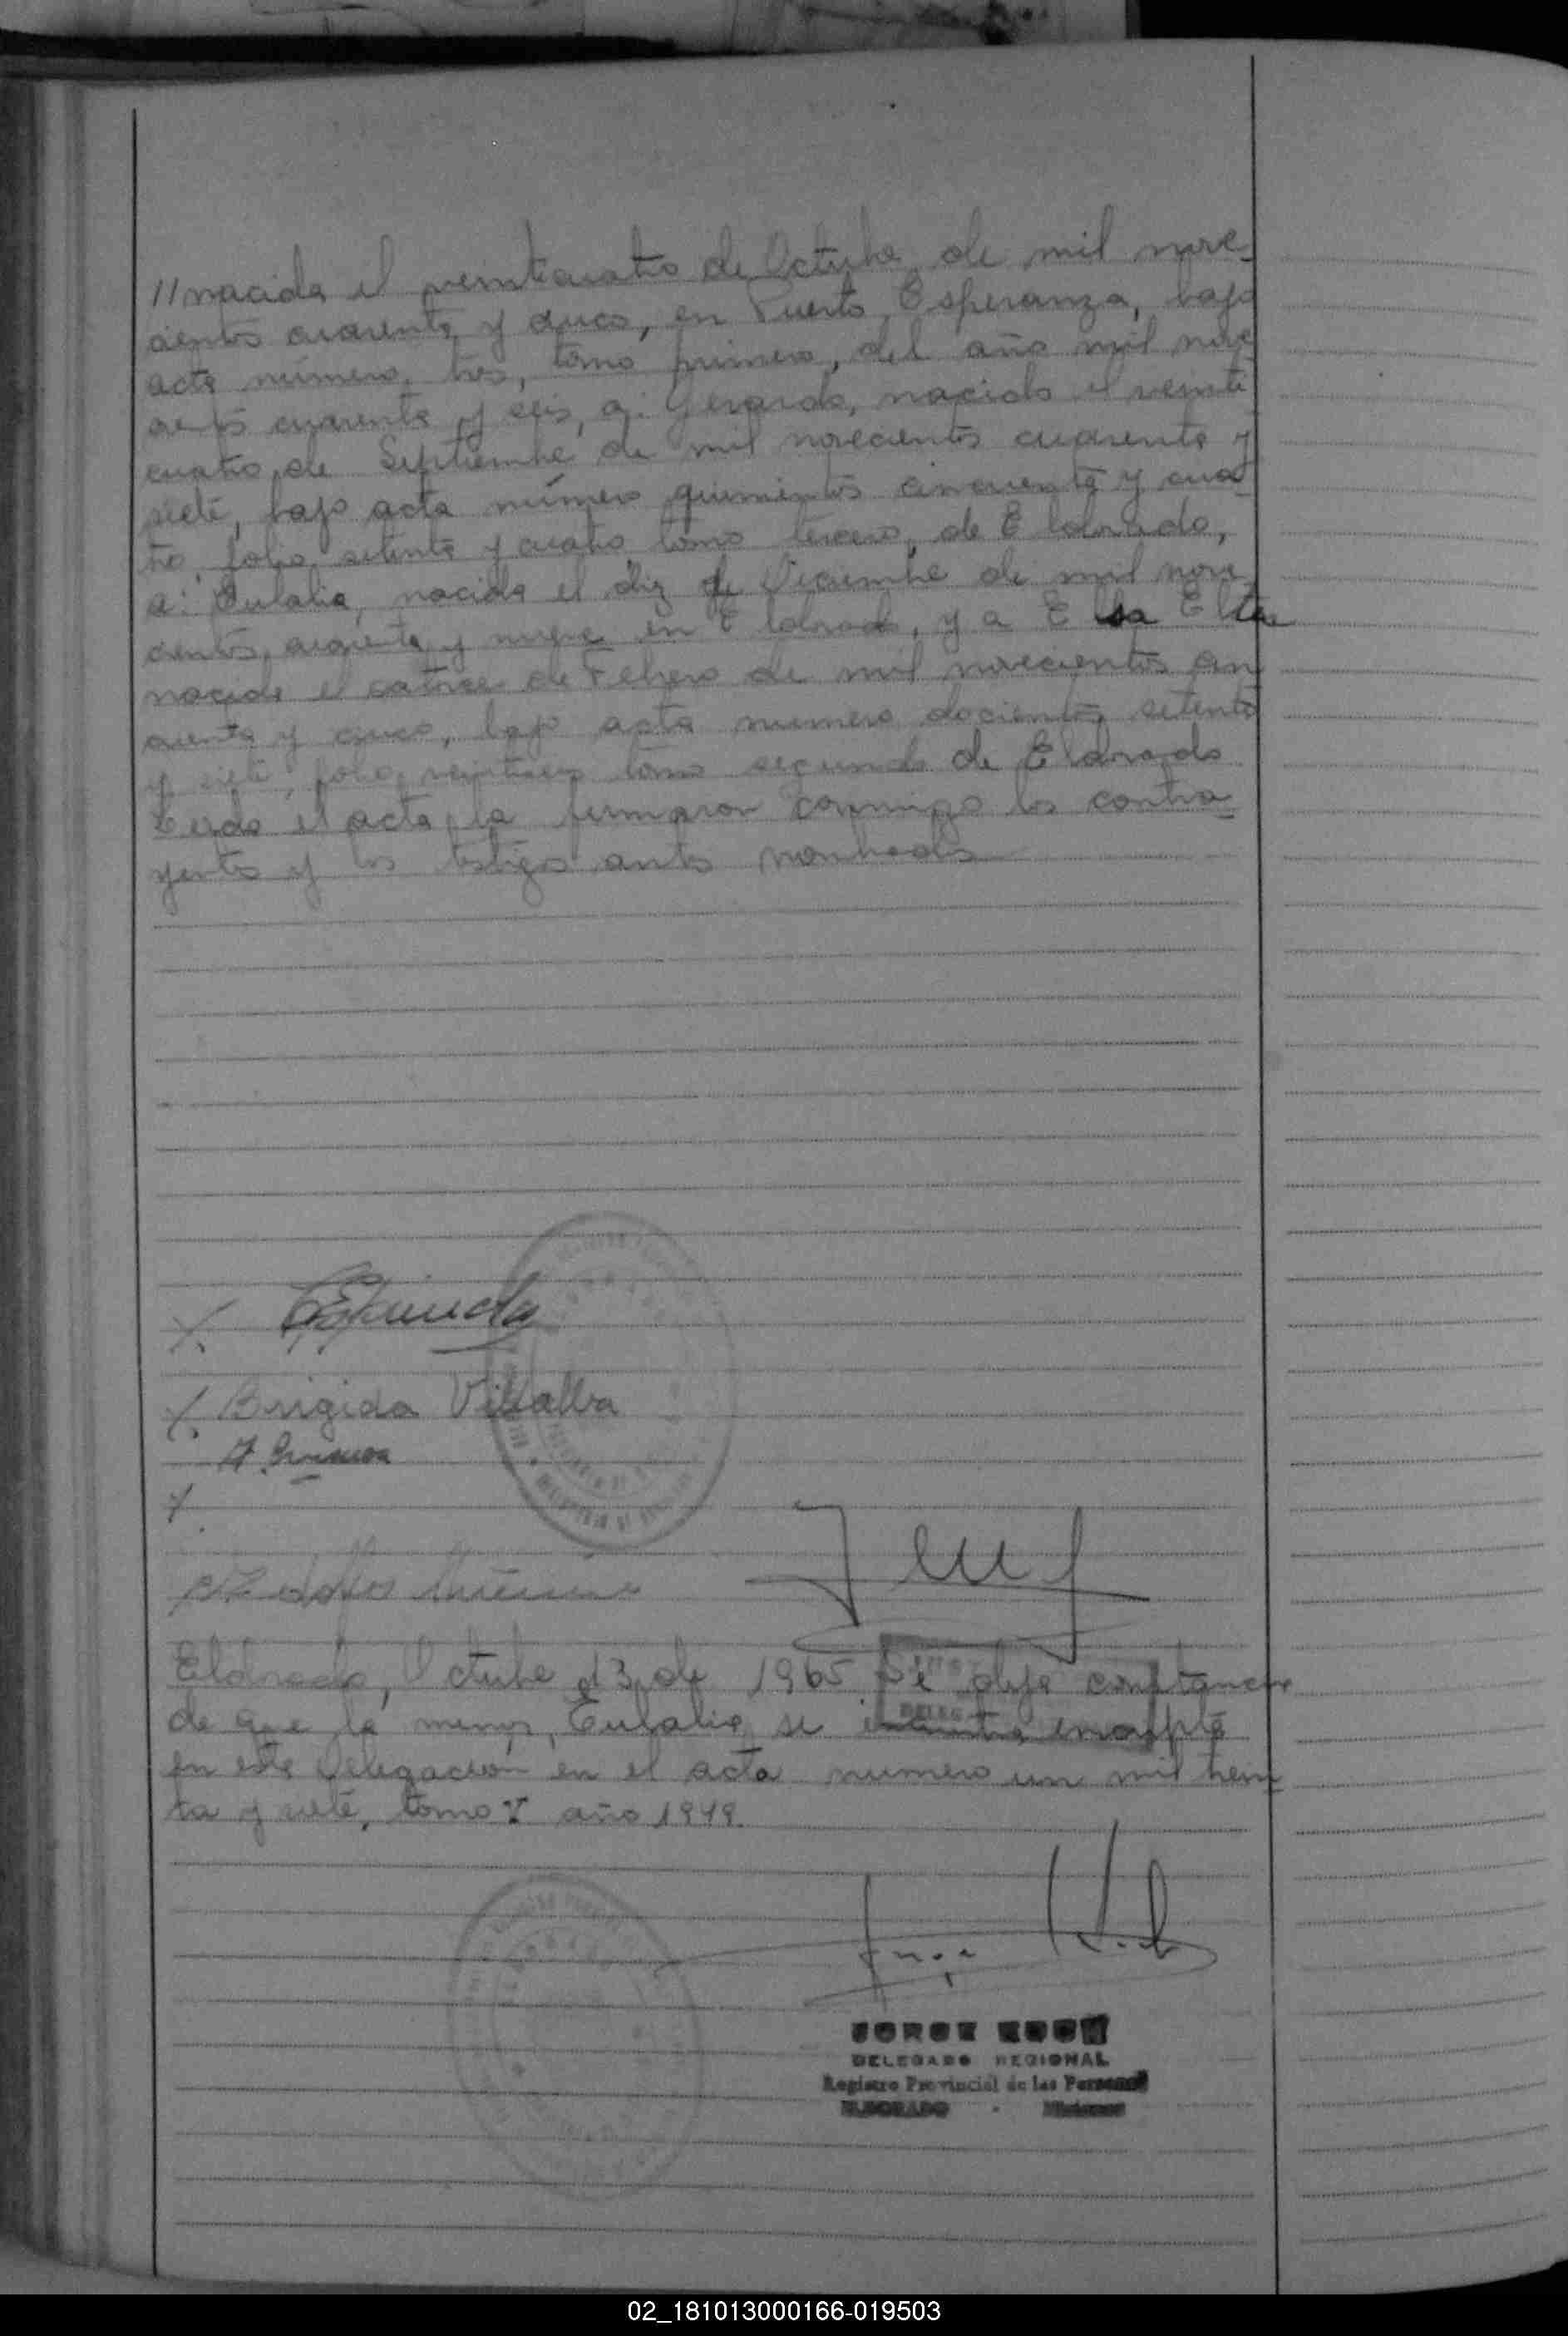 // nacida el veinticuatro de Octubre de mil nove-
cientos cuarenta y cinco, en Puerto Esperanza, bajo
acta número tres, tomo primero, del año mil nove
cientos cuarenta y seis, a: Gerardo, nacido el veinti
cuatro de Septiembre de mil novecientos cuarenta y
siete, bajo acta número quinientos cincuenta y cua-
tro, folio setenta y cuatro tomo tercero, de Eldorado,
a: Eulalia, nacida el diez de Diciembre de mil nove
cientos cuarenta y nueve en Eldorado, y a Elsa
nacida el catorce de Febrero de mil novecientos cin
cuenta y cinco, bajo acta numero docientos setenta
y siete, folio veintiseis tomo segundo de Eldorado
Leida el acta la firmaron conmigo los contra-
yentes y los testigos antes nombrados
Espinola
Brigida Villalba
Eldorado, Octubre 13 de 1965 Se deja constancia
de que la menor, Eulalia se inscripta
en esta Delegación en el acta numero un mil trein
ta y siete, tomo V año 1949.
JORGE KOCH
DELEGADO REGIONAL
Registro Provincial de las Personas
ELDORADO - Misiones
02_181013000166-019503